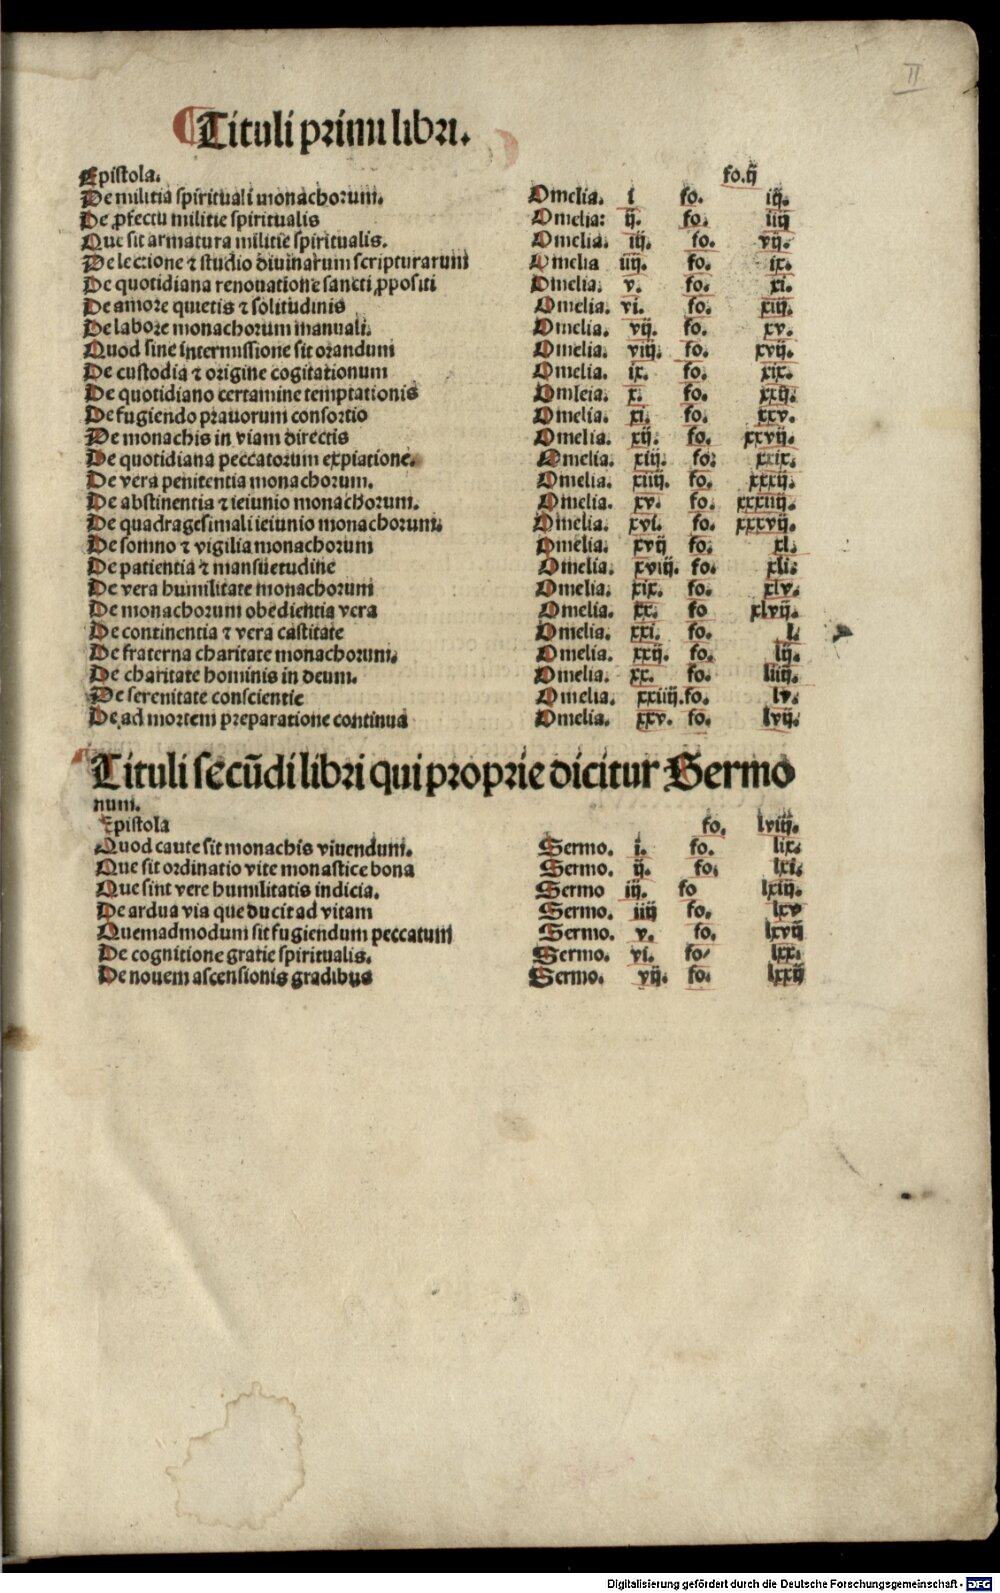 II
Tituli primi libri.
Epistola. fo.ij
De militia spirituali monachorum. Omelia. i fo. iij.
De ꝓfectu militie spiritualis Omelia: ij. fo. iiij
Que sit armatura militie spiritualis. Omelia. iij. fo. vij.
De leccione ⁊ studio diuinarum scripturarum Omelia iiij. fo. ix.
De quotidiana renouatione sancti ꝓpositi Omelia. v. fo. xi.
De amore quietis ⁊ solitudinis Omelia. vi. fo. xiij.
De labore monachorum manuali. Omelia. vij. fo. xv.
Quod sine intermissione sit orandum Omelia. viij. fo. xvij.
De custodia ⁊ origine cogitationum Omelia. ix. fo. xix.
De quotidiano certamine temptationis Omleia. x. fo. xxij.
De fugiendo prauorum consortio Omelia. xi. fo. xxv.
De monachis in viam directis Omelia. xij. fo. xxvij.
De quotidiana peccatorum expiatione. Omelia. xiij. fo: xxix.
De vera penitentia monachorum. Omelia. xiiij. fo. xxxij.
De abstinentia ⁊ ieiunio monachorum. Omelia. xv. fo. xxxiiij.
De quadragesimali ieiunio monachorum. Omelia. xvi. fo. xxxvij.
De somno ⁊ vigilia monachorum Omelia. xvij fo. xl.
De patientia ⁊ mansuetudine Omelia. xviij. fo. xli.
De vera humilitate monachorum Omelia. xix. fo. xlv.
De monachorum obedientia vera Omelia. xx. fo xlvij.
De continentia ⁊ vera castitate Omelia. xxi. fo. l.
De fraterna charitate monachorum. Omelia. xxij. fo. lij.
De charitate hominis in deum. Omelia. xx. fo. liiij.
De serenitate conscientie Omelia. xxiiij.fo. lv.
De ad mortem preparatione continua Omelia. xxv. fo. lvij.
Tituli secūdi libri qui proprie dicitur Sermo
num.
Epistola fo. lviij.
Quod caute sit monachis viuendum. Sermo. i. fo. lix.
Que sit ordinatio vite monastice bona Sermo. ij. fo. lxi.
Que sint vere humilitatis indicia. Sermo iij. fo lxiij.
De ardua via que ducit ad vitam Sermo. iiij fo. lxv
Quemadmodum sit fugiendum peccatum Sermo. v. fo. lxvij
De cognitione gratie spiritualis. Sermo. vi. fo. lxx.
De nouem ascensionis gradibus Sermo. vij. fo. lxxij
Digitalisierung gefördert durch die Deutsche Forschungsgemeinschaft - DFG